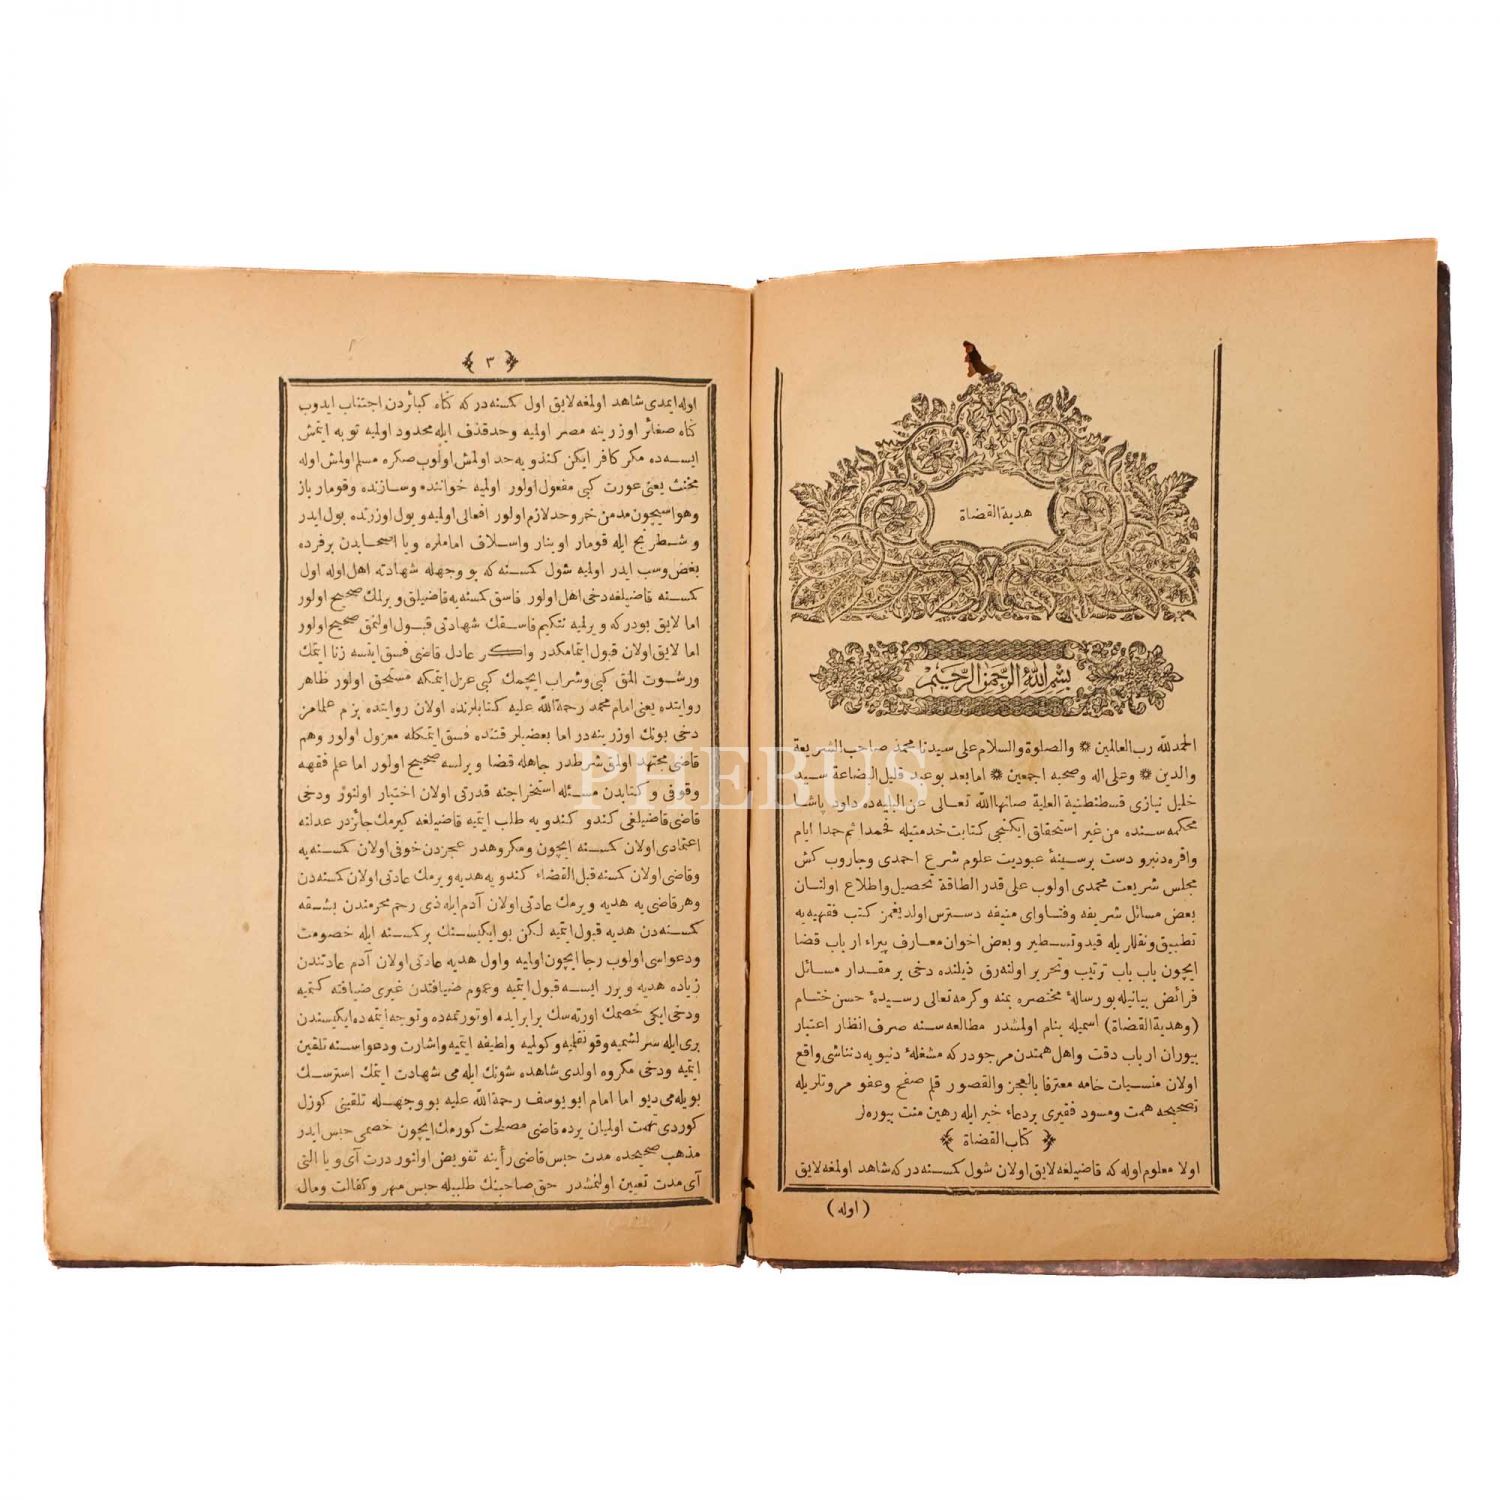 هدية القضاة
بسم الله الرحمن الرحيم
الحمد لله رب العالمين ❋ والصلوة والسلام على سيدنا محمد صاحب الشريعة
والدين ❋ وعلى اله وصحبه اجمعين ❋ اما بعد بو عبد قليل البضاعة سيد
خليل نيازى قسطنطنية العلية صانها الله تعالى عن البليه ده داود پاشا
محكمه سنده من غير استحقاق ايكنجى كتابت خدمتيله فحمدا ثم حمدا ايام
وافره دنبرو دست بر سينۀ عبوديت علوم شرع احمدى وجاروب كش
مجلس شريعت محمدى اولوب على قدر الطاقة تحصيل واطلاع اولنان
بعض مسائل شريفه وفتاواى منيفه دسترس اولديغمز كتب فقهيه يه
تطبيق ونقللريله قيد وتسطير وبعض اخوان معارف پيراء ارباب قضا
ايچون باب باب ترتيب وتحرير اولنه رق ذيلنده دخى بر مقدار مسائل
فرائض بيانيله بو رسالۀ مختصره بمنه وكرمه تعالى رسيدۀ حسن ختام
(وهدية القضاة) اسميله بنام اولمشدر مطالعه سنه صرف انظار اعتبار
بيوران ارباب دقت واهل همتدن مرجودر كه مشغلۀ دنيويه دن ناشى واقع
اولان منسيات خامه معترفا بالعجز والقصور قلم صفح وعفو مروتلريله
تصحيحه همت ومسود فقيرى بر دعاء خير ايله رهين منت بيوره لر
﴿ كتاب القضاة ﴾
اولا معلوم اوله كه قاضيلغه لايق اولان شول كمسنه در كه شاهد اولمغه لايق
(اوله)
﴿ ٣ ﴾
اوله ايمدى شاهد اولمغه لايق اول كمسنه در كه كناه كبائردن اجتناب ايدوب
كناه صغائر اوزرينه مصر اولميه وحد قذف ايله محدود اولميه توبه ايتمش
ايسه ده مكر كافر ايكن كندويه حد اولمش اولوب صكره مسلم اولمش اوله
مخنث يعنى عورت كبى مفعول اولور اولميه خواننده وسازنده وقومار باز
وهواسيچون مدمن خمر وحد لازم اولور افعالى اولميه ويول اوزرنده بول ايدر
وشطرنج ايله قومار اوينار واسلاف اماملره ويا اصحابدن بر فرده
بغض وسب ايدر اولميه شول كمسنه كه بو وجهله شهادته اهل اوله اول
كمسنه قاضيلغه دخى اهل اولور فاسق كمسنه يه قاضيلق ويرلمك صحيح اولور
اما لايق بودر كه ويرلميه نتكيم فاسقك شهادتى قبول اولنمق صحيح اولور
اما لايق اولان قبول ايتمامكدر واكر عادل قاضى فسق ايتسه زنا ايتمك
ورشوت المق كبى وشراب ايچمك كبى عزل ايتمكه مستحق اولور ظاهر
روايتده يعنى امام محمد رحمة الله عليه كتابلرنده اولان روايتده بزم علمامز
دخى بونك اوزرينه در اما بعضيلر قتنده فسق ايتمكله معزول اولور وهم
قاضى مجتهد اولمق شرطدر جاهله قضا ويرلسه صحيح اولور اما علم فقهه
وقوفى وكتابدن مسئله استخراجنه قدرتى اولان اختيار اولنور ودخى
قاضى قاضيلغى كندو كندويه طلب ايتميه قاضيلغه كيرمك جائزدر عدلنه
اعتمادى اولان كمسنه ايچون ومكروهدر عجزدن خوفى اولان كمسنه يه
وقاضى اولان كمسنه قبل القضاء كندويه هديه ويرمك عادتى اولان كمسنه دن
وهر قاضى يه هديه ويرمك عادتى اولان آدم ايله ذى رحم محرمندن بشقه
كمسنه دن هديه قبول ايتميه لكن بو ايكيسنك بر كمسنه ايله خصومت
ودعواسى اولوب رجا ايچون اولميه واول هديه عادتى اولان آدم عادتندن
زياده هديه ويرر ايسه قبول ايتميه وعموم ضيافتدن غيرى ضيافته كتميه
ودخى ايكى خصمك اورته سك برابر ايده اوتورتمه ده وتوجه ايتمه ده ايكيسندن
برى ايله سرلشميه وقونقلميه وكولميه ولطيفه ايتميه واشارت ودعواسنه تلقين
ايتميه ودخى مكروه اولدى شاهده شونك ايله مى شهادت ايتمك استرسك
بويله مى ديو اما امام ابو يوسف رحمة الله عليه بو وجهله تلقينى كوزل
كوردى تهمت اولميان يرده قاضى مصلحت كورمك ايچون خصمى حبس ايدر
مذهب صحيحده مدت حبس قاضى رأينه تفويض اولنور درت آى ويا التى
آى مدت تعيين اولنمشدر حق صاحبنك طلبيله حبس مهر وكفالت ومال
PHEBUS